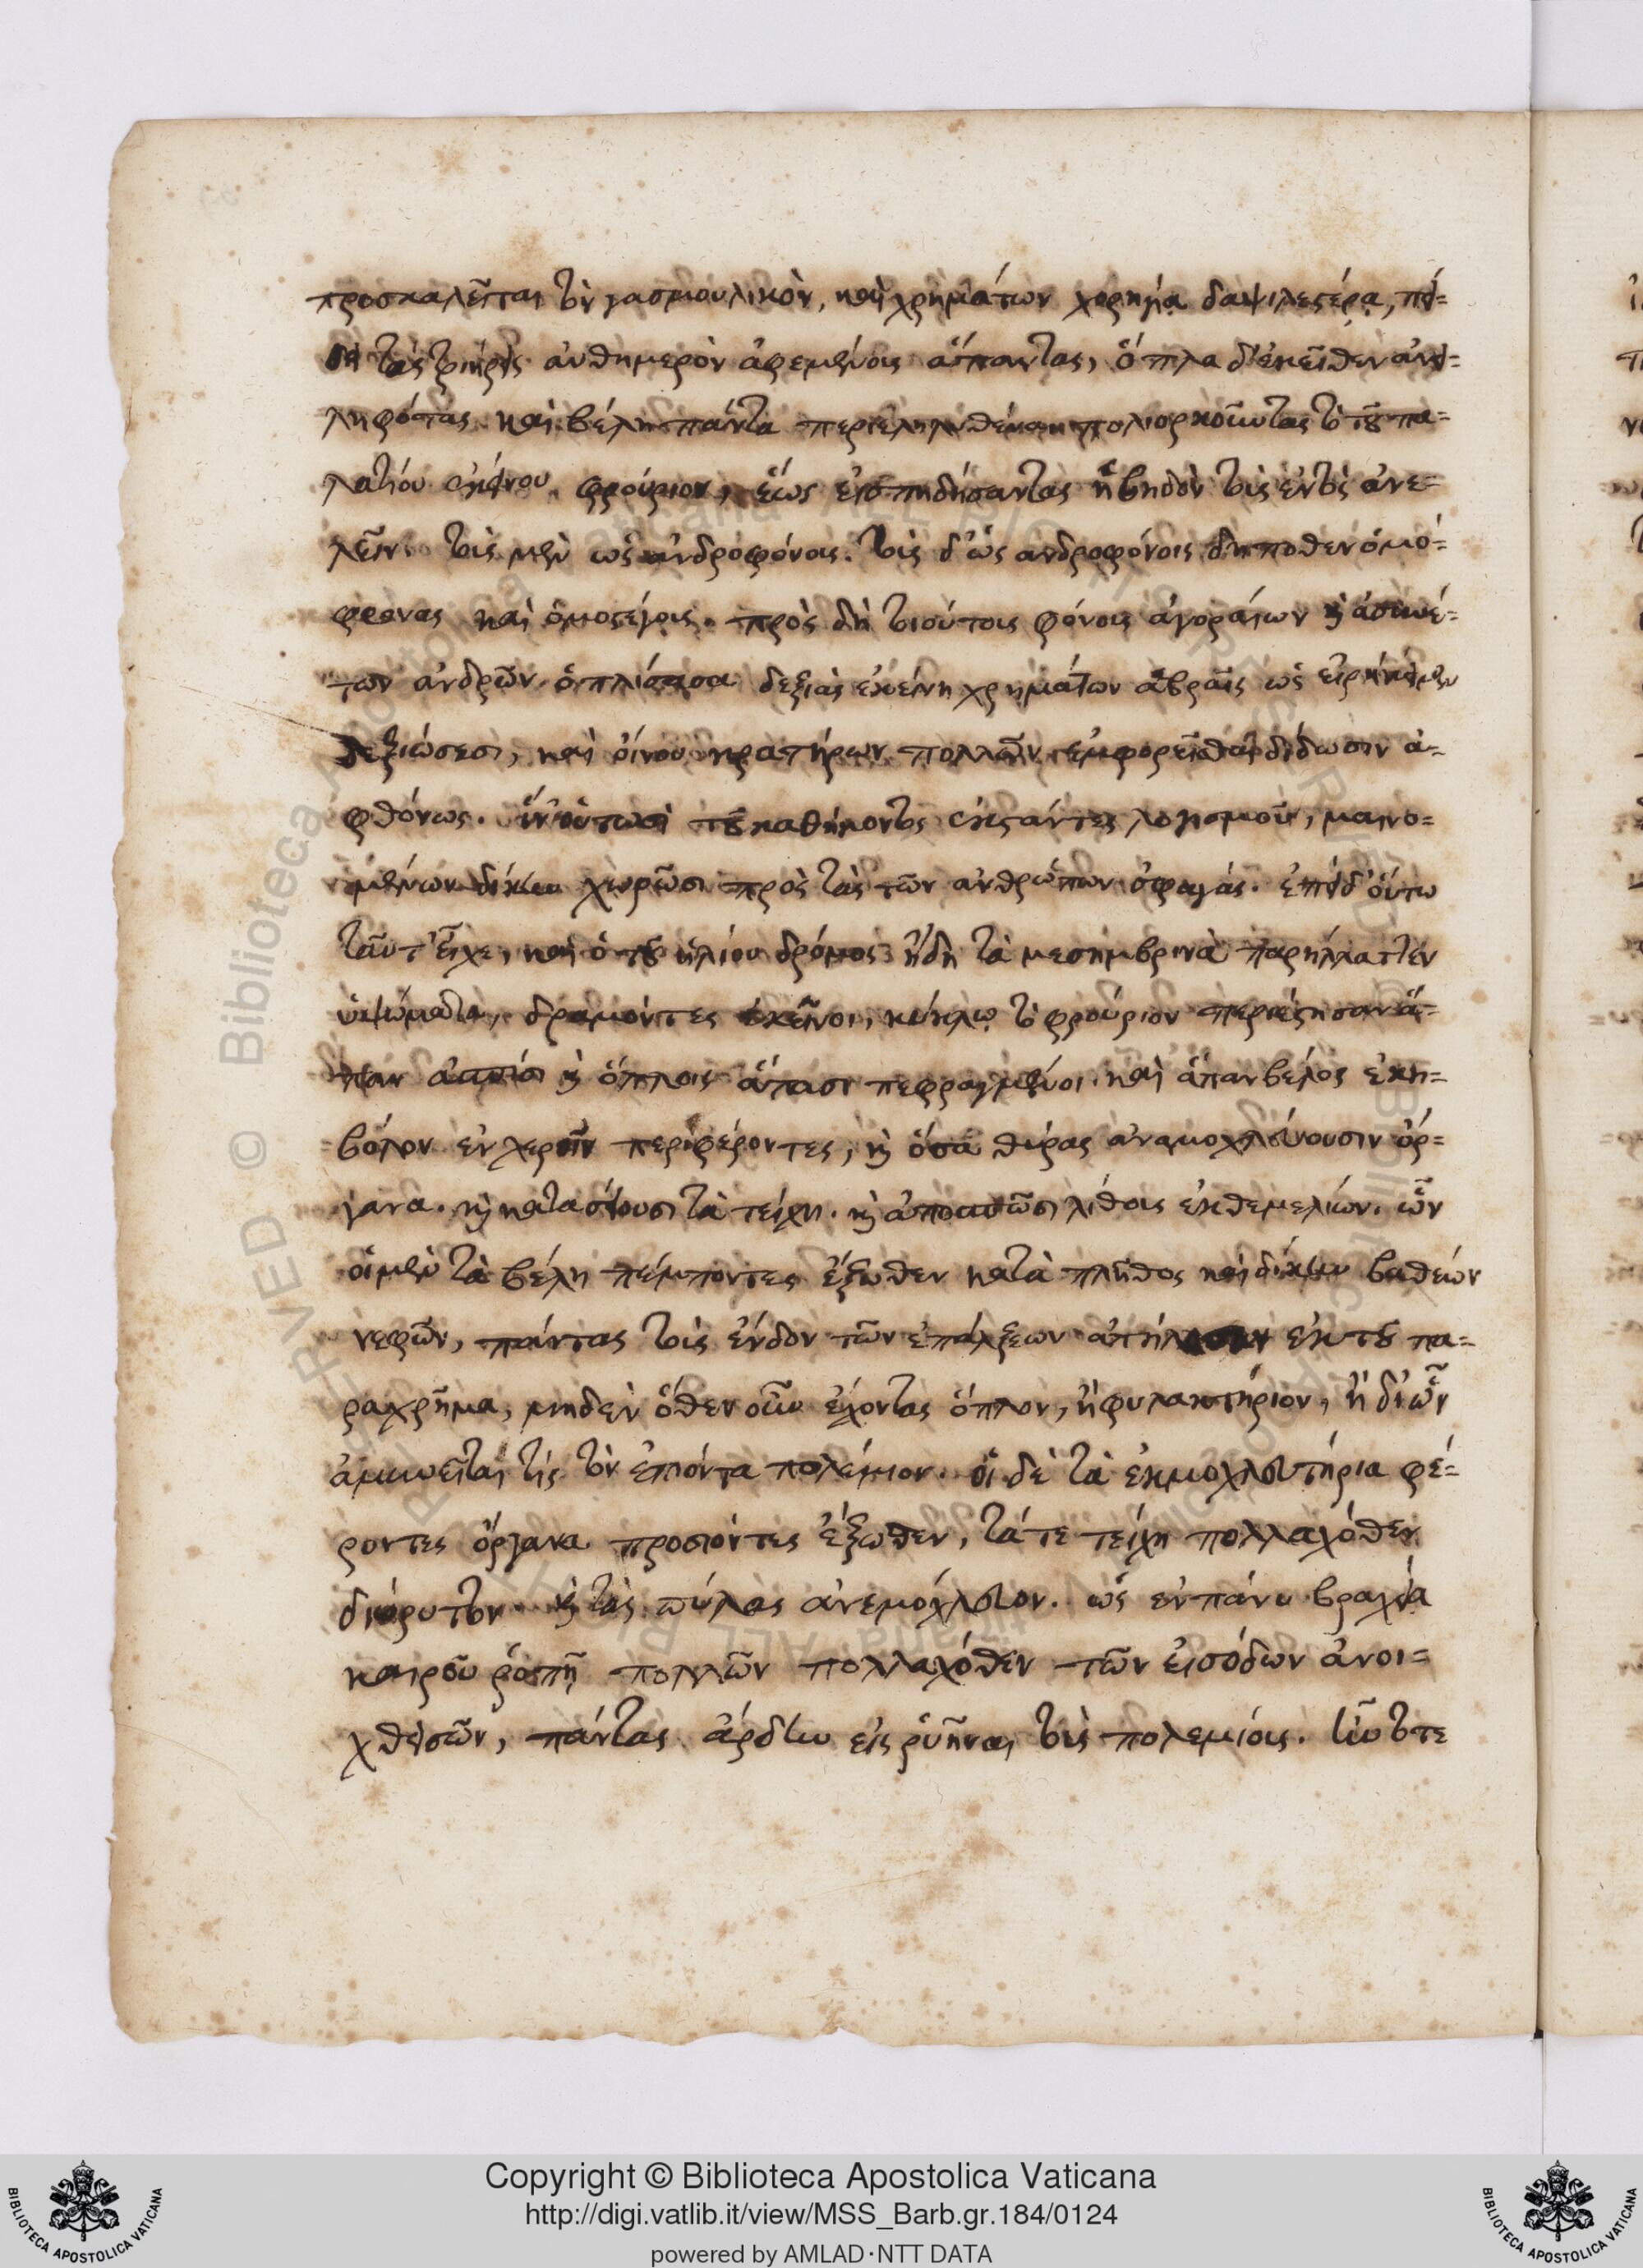 προσκαλεῖται τὸν γασμουλικὸν, καὶ χρημάτων χορηγίᾳ δαψιλεστέρᾳ, πεί=
θει τὰς τριήρεις αὐθημερὸν ἀφεμένους ἅπαντας, ὅπλα δ' ἐκεῖθεν ἀνει=
ληφότας καὶ βέλη πάντα περιεληλυθέναι πολιορκοῦντας τὸ τοῦ πα=
λατίου ἐκείνου φρούριον, ἕως εἰσπηδήσαντας ἡβηδὸν τοὺς ἐντὸς ἀνε=
λεῖν. τοὺς μὲν ὡς ἀνδροφόνους. τοὺς δ' ὡς ἀνδροφόνοις δήποθεν ὁμό=
φρονας καὶ ὁμοστέγους. πρὸς δὴ τοιούτους φόνους ἀγοραίων καὶ ἀσυνέ=
των ἀνδρῶν ὁπλίσασα δεξιὰς ἐκείνη χρημάτων ἁβραῖς ὡς εἰρήκειμεν
δεξιώσεσι, καὶ οἴνου κρατήρων πολλῶν ἐμφορεῖσθαι δίδωσιν ἀ=
φθόνως. ἵν' οὑτωσὶ τοῦ καθήκοντος ἐκστάντες λογισμοῦ, μαινο=
μένων δίκην χωρῶσι πρὸς τὰς τῶν ἀνθρώπων σφαγάς. ἐπεὶ δ' οὕτω
ταῦτ' εἶχε, καὶ ὁ τοῦ ἡλίου δρόμος ἤδη τὰ μεσημβρινὰ παρήλλαττεν
ὑψώματα, δραμόντες ἐκεῖνοι, κύκλῳ τὸ φρούριον περιέστησαν ἅ=
παν ἀσπίσι καὶ ὅπλοις ἅπασι πεφραγμένοι. καὶ ἅπαν βέλος ἑκη=
βόλον ἐν χεροῖν περιφέροντες, καὶ ὅσα θύρας ἀναμοχλεύουσιν ὄρ=
γανα. καὶ κατασείουσι τὰ τείχη. καὶ ἀποσπῶσι λίθους ἐκ θεμελίων. ὧν
οἱ μὲν τὰ βέλη πέμποντες ἔξωθεν κατὰ πλῆθος καὶ δίκην βαθειῶν
νεφῶν, πάντας τοὺς ἔνδον τῶν ἐπάλξεων ἀπήλασαν ἐκ τοῦ πα=
ραχρῆμα, μηδὲν ὅθεν οὖν ἔχοντας ὅπλον, ἢ φυλακτήριον, ἢ δι' ὧν
ἀμυνεῖται τίς τὸν ἐπιόντα πολέμιον. οἱ δὲ τὰ ἐκμοχλευτήρια φέ=
ροντες ὄργανα προσιόντες ἔξωθεν, τά τε τείχη πολλαχόθεν
διώρυττον. καὶ τὰς πύλας ἀνεμόχλευον. ὡς ἐν πάνυ βραχείᾳ
καιροῦ ῥοπῇ πολλῶν πολλαχόθεν τῶν εἰσόδων ἀνοι=
χθεισῶν, πάντας ἄρδην εἰσρυῆναι τοὺς πολεμίους. ἦν τότε
Copyright © Biblioteca Apostolica Vaticana
http://digi.vatlib.it/view/MSS_Barb.gr.184/0124
powered by AMLAD·NTT DATA